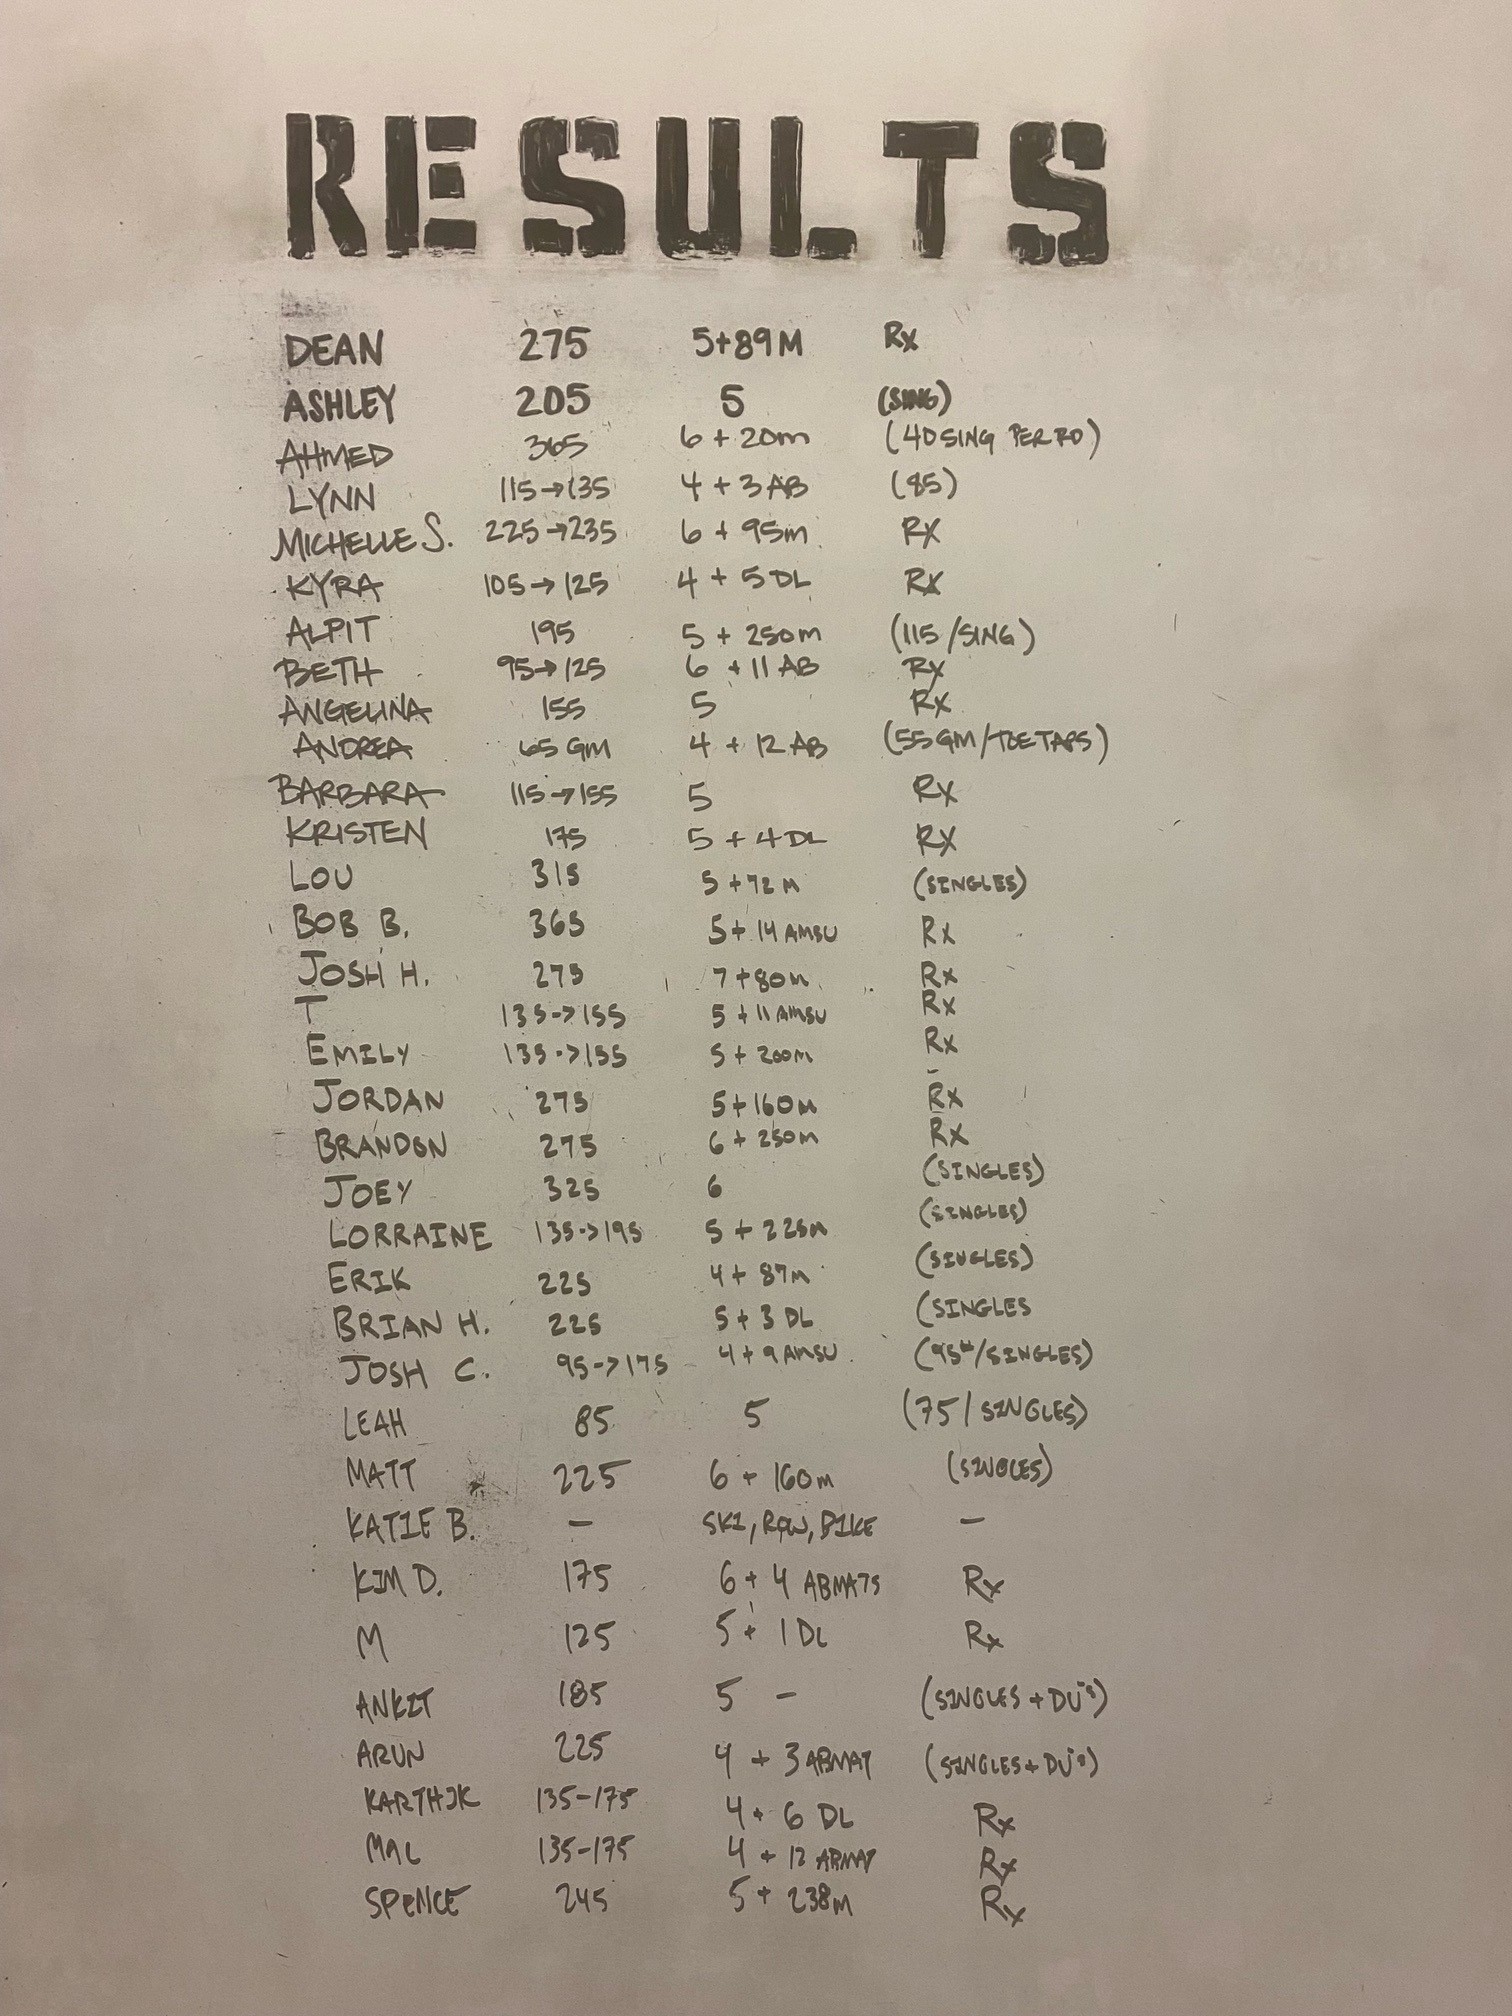 RESULTS
DEAN 275 5+89M Rx
ASHLEY 205 5 (SING)
AHMED 365 6 + 20m (40 SING PER RD)
LYNN 115→135 4 + 3 AB (85)
MICHELLE S. 225→235 6 + 95m RX
KYRA 105→125 4 + 5 DL RX
ALPIT 195 5 + 250m (115/SING)
BETH 95→125 6 + 11 AB RX
ANGELINA 155 5 RX
ANDREA 65 GM 4 + 12 AB (55 GM/TOE TAPS)
BARBARA 115→155 5 RX
KRISTEN 175 5 + 4 DL RX
LOU 315 5 +72 M (SINGLES)
BOB B. 365 5+ 14 AMSU Rx
JOSH H. 275 7 +80m Rx
T 135->155 5 + 11 AMSU Rx
EMILY 135->155 5 + 200m Rx
JORDAN 275 5+160m Rx
BRANDON 275 6 + 250m Rx
JOEY 325 6 (SINGLES)
LORRAINE 135->195 5 + 225m (SINGLES)
ERIK 225 4 + 87m (SINGLES)
BRIAN H. 225 5 + 3 DL (SINGLES
JOSH C. 95->175 4 + 9 AMSU (95#/SINGLES)
LEAH 85 5 (75/SINGLES)
MATT 225 6 + 160m (SINGLES)
KATIE B. – SKI, ROW, BIKE –
KIM D. 175 6 + 4 ABMATS Rx
M 125 5 + 1 DL Rx
ANKIT 185 5 – (SINGLES + DU's)
ARUN 225 4 + 3 ABMAT (SINGLES + DU's)
KARTHIK 135-175 4 + 6 DL Rx
MAL 135-175 4 + 12 ABMAT Rx
SPENCE 245 5 + 238m Rx